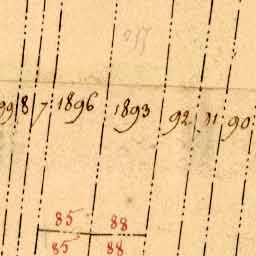 99 8 7 1896 1893 92 91 90
85 88
85 88